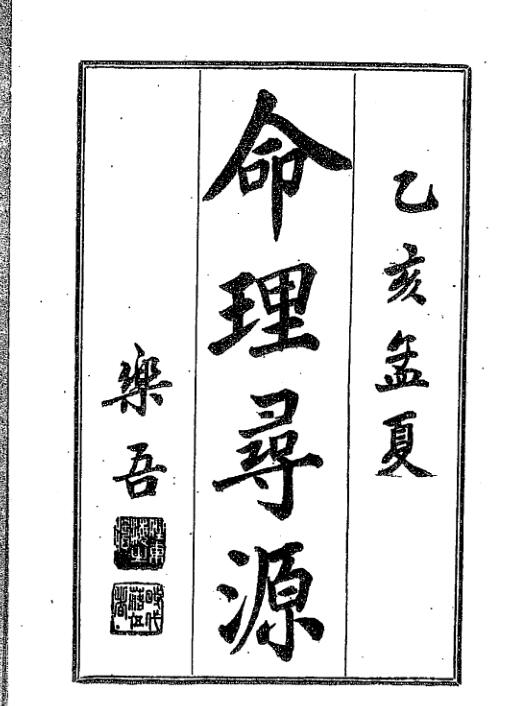 乙亥孟夏
命理尋源
樂吾